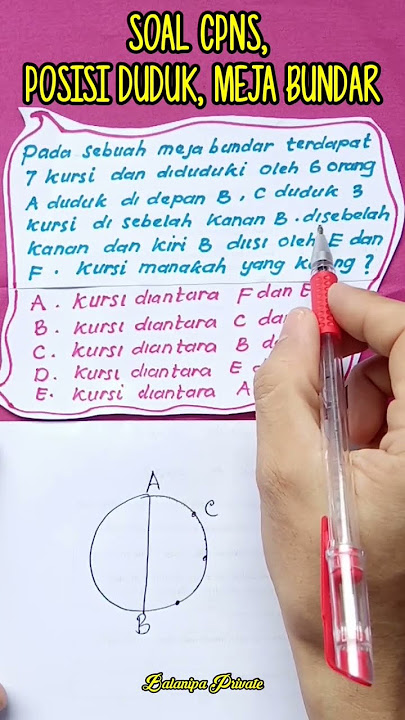 SOAL CPNS,
POSISI DUDUK, MEJA BUNDAR
Pada sebuah meja bundar terdapat
7 kursi dan diduduki oleh 6 orang
A duduk di depan B, C duduk 3
kursi di sebelah kanan B. disebelah
kanan dan kiri B diisi oleh E dan
F. Kursi manakah yang ?
A. Kursi diantara F dan
B. Kursi diantara C
C. Kursi diantara B
D. Kursi diantara E
E. Kursi diantara A
A
C
B
Balanipa Private